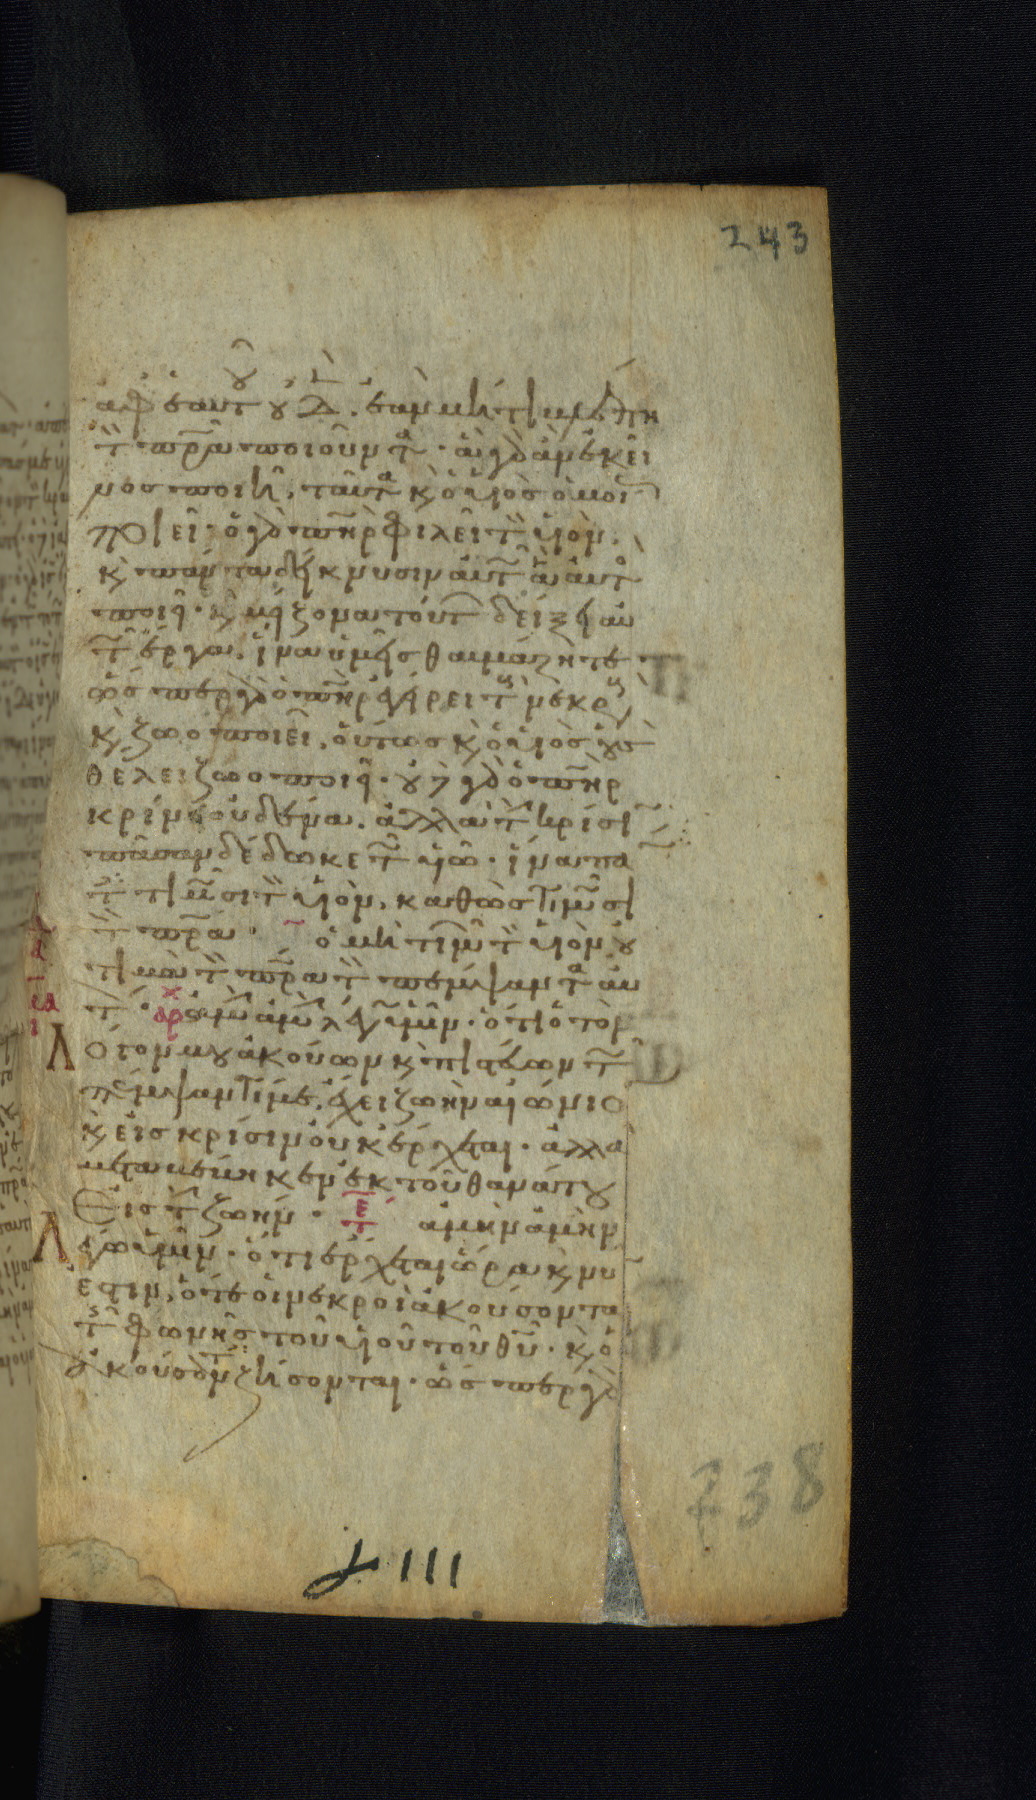 243
ἀφ ἑαυτοῦ οὐδὲν. ἐὰν μή τι βλέπη
τὸν πρα ποιοῦντα· ἃ γὰρ ἂν ἐκεῖ
νος ποιῆ, ταῦτα κ ὁ υἱὸς ὁμοί
ποιεῖ· ὁ γὰρ πηρ φιλεῖ τὸν υἱὸν.
κ πάντα δείκνυσιν αὐτῶ ἃ αὐτὸς
ποιεῖ. κ μείζονα τούτων δείξει αὐ
τῶ ἔργα. ἵνα ὑμεῖς θαυμάζητε
ὥσπερ γὰρ ὁ πηρ ἐγείρει τοὺς νεκροὺς
κ ζωοποιεῖ. οὕτως κ ὁ υἱὸς οὓς
θέλει ζωοποιεῖ. οὐδὲ γὰρ ὁ πηρ
κρίνει οὐδένα. ἀλλὰ τὴν κρίσιν
πᾶσαν δέδωκε τῶ υἱῶ. ἵνα πάν
τες τιμῶσι τὸν υἱὸν. καθὼς τιμῶσι
τὸν πρα. ὁ μὴ τιμῶν τὸν υἱὸν οὐ
τιμᾶ τὸν πρα τὸν πέμψαντα αὐ
τόν. ἀμὴν ἀμὴν λέγω ὑμῖν. ὅτι ὁ τὸν
λόγον μου ἀκούων κ πιστεύων τῶ
πέμψαντί με. ἔχει ζωὴν αἰώνιον
κ εἰς κρίσιν οὐκ ἔρχεται. ἀλλὰ
μεταβέβηκεν ἐκ τοῦ θανάτου
εἰς τὴν ζωήν. ἀμὴν ἀμὴν
λέγω ὑμῖν. ὅτι ἔρχεται ὥρα κ νῦν
ἐστιν. ὅτε οἱ νεκροὶ ἀκούσονται
τῆς φωνῆς τοῦ υἱοῦ τοῦ θυ. κ οἱ
ἀκούσαντες ζήσονται. ὥσπερ γὰρ
238
111